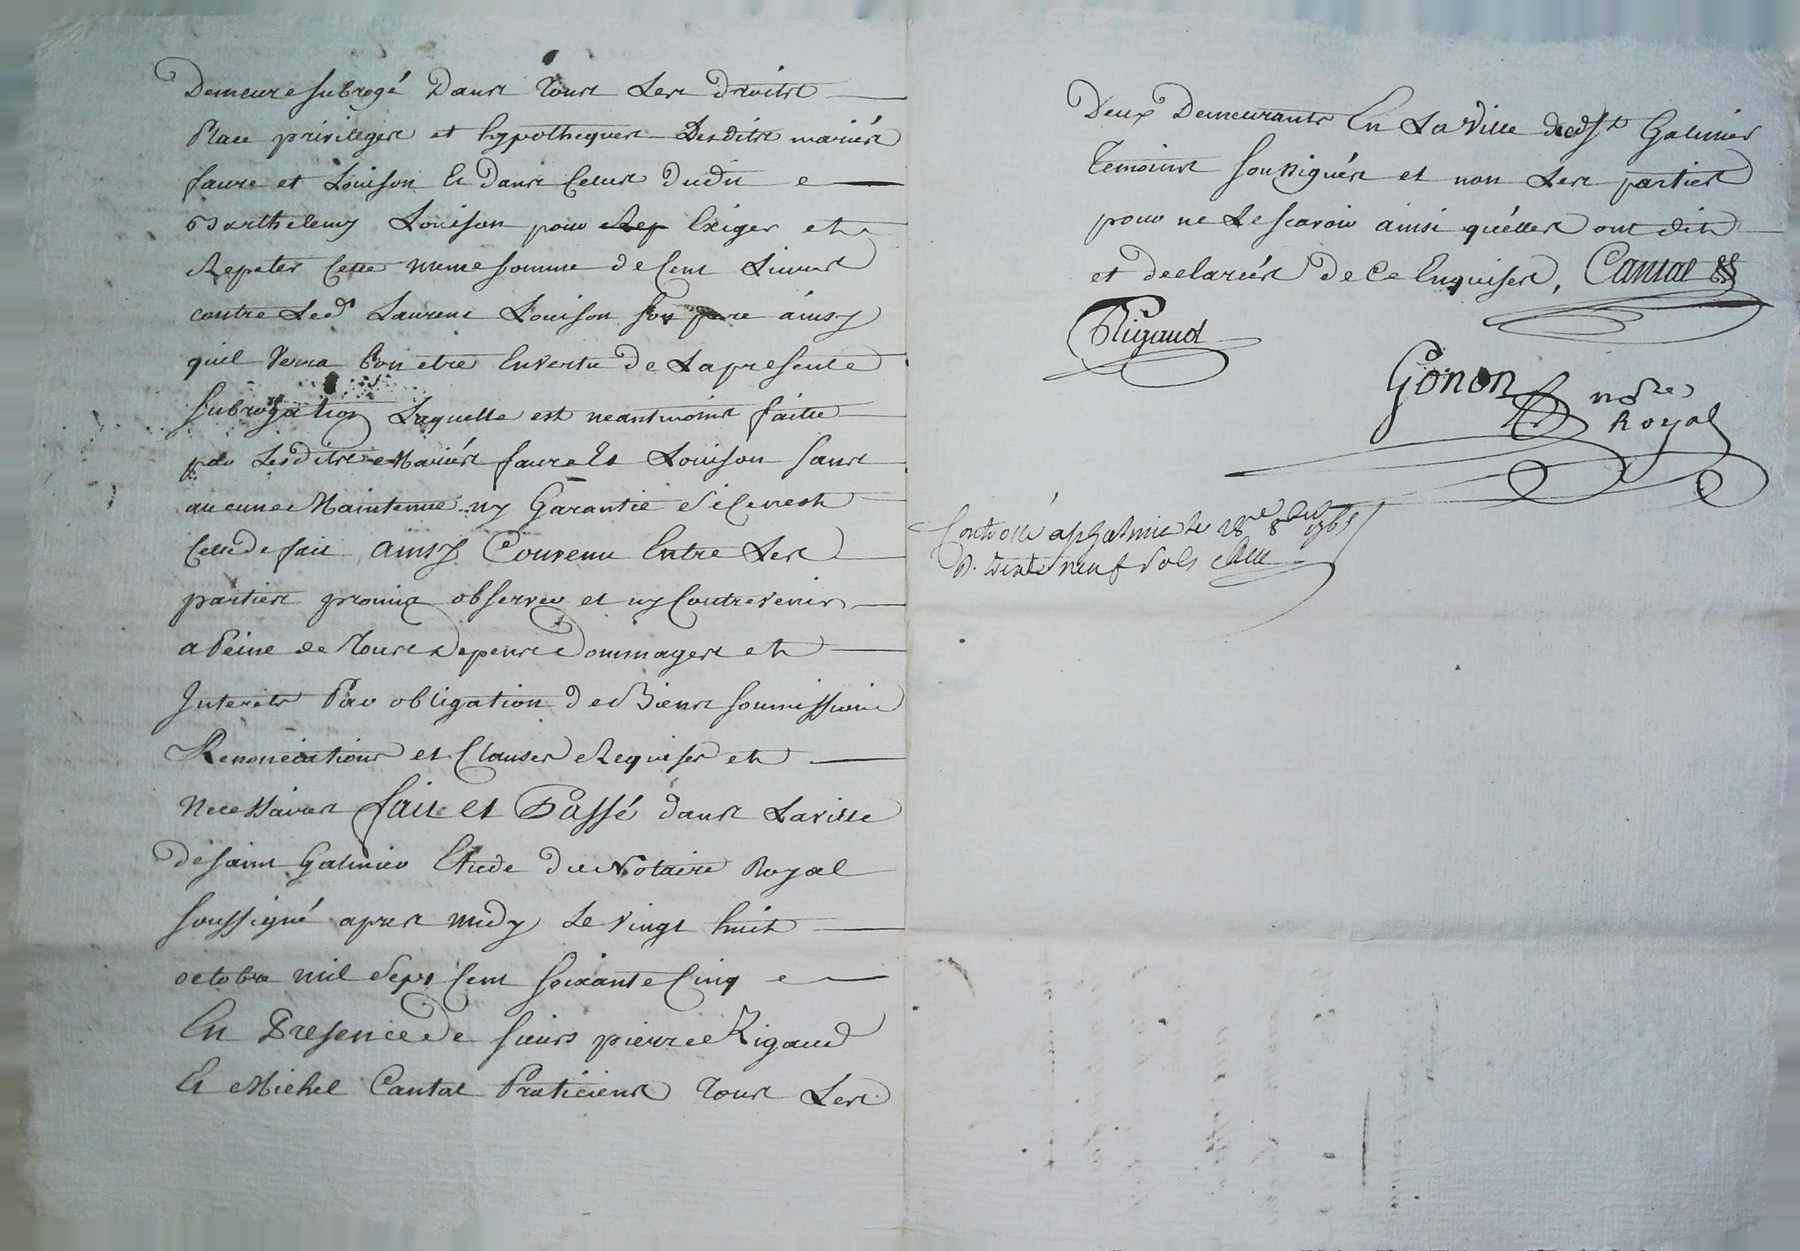 Demeure subrogé Dans Tous Les droits
Place privileges et hypotheques Desdits mariés
faure et Louison Et dans Ceux dudit
Barthelemy Louison pour Rep Exiger et
Repeter Cette meme somme de Cent Livres
contre Led.t Laurent Louison son pere ainsy
quil verra bon etre En vertu de La presente
Subrogation Laquelle est neantmoins faitte
par Lesdits Mariés faure Et Louison sans
aucune Maintenue ny Garantie Si Ce nest
Celle de fait Ainsy Convenu Entre Les
parties promis observer et ny Contrevenir
a Peine de Tous depens Dommages et
Interets Par obligation de Biens soumissions
Renonciations et Clauses Requises et
Necessaires fait et Passé dans La ville
de saint Galmier Etude du Notaire Royal
soussigné apres midy Le vingt huit
octobre mil Sept Cent soixante Cinq
En Presence de sieurs pierre Rigaud
Et Michel Cantal Praticiens Tous Les
Deux Demeurants En La Ville dud St Galmier
Temoins soussignés et non Les parties
pour ne Le scavoir ainsi quelles ont dit
et declarées De Ce Enquises, Cantal
Rigaud
Gonon no.re
Royal
Controllé a St Galmier le 28.e 8bre 1765
R. trente neuf sols